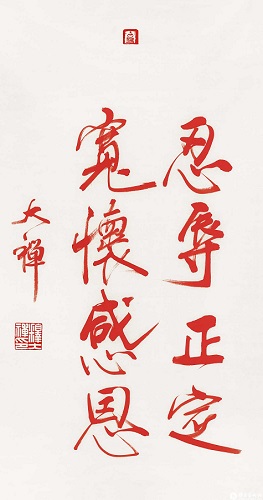 忍辱正定
寬懷感恩
大禪